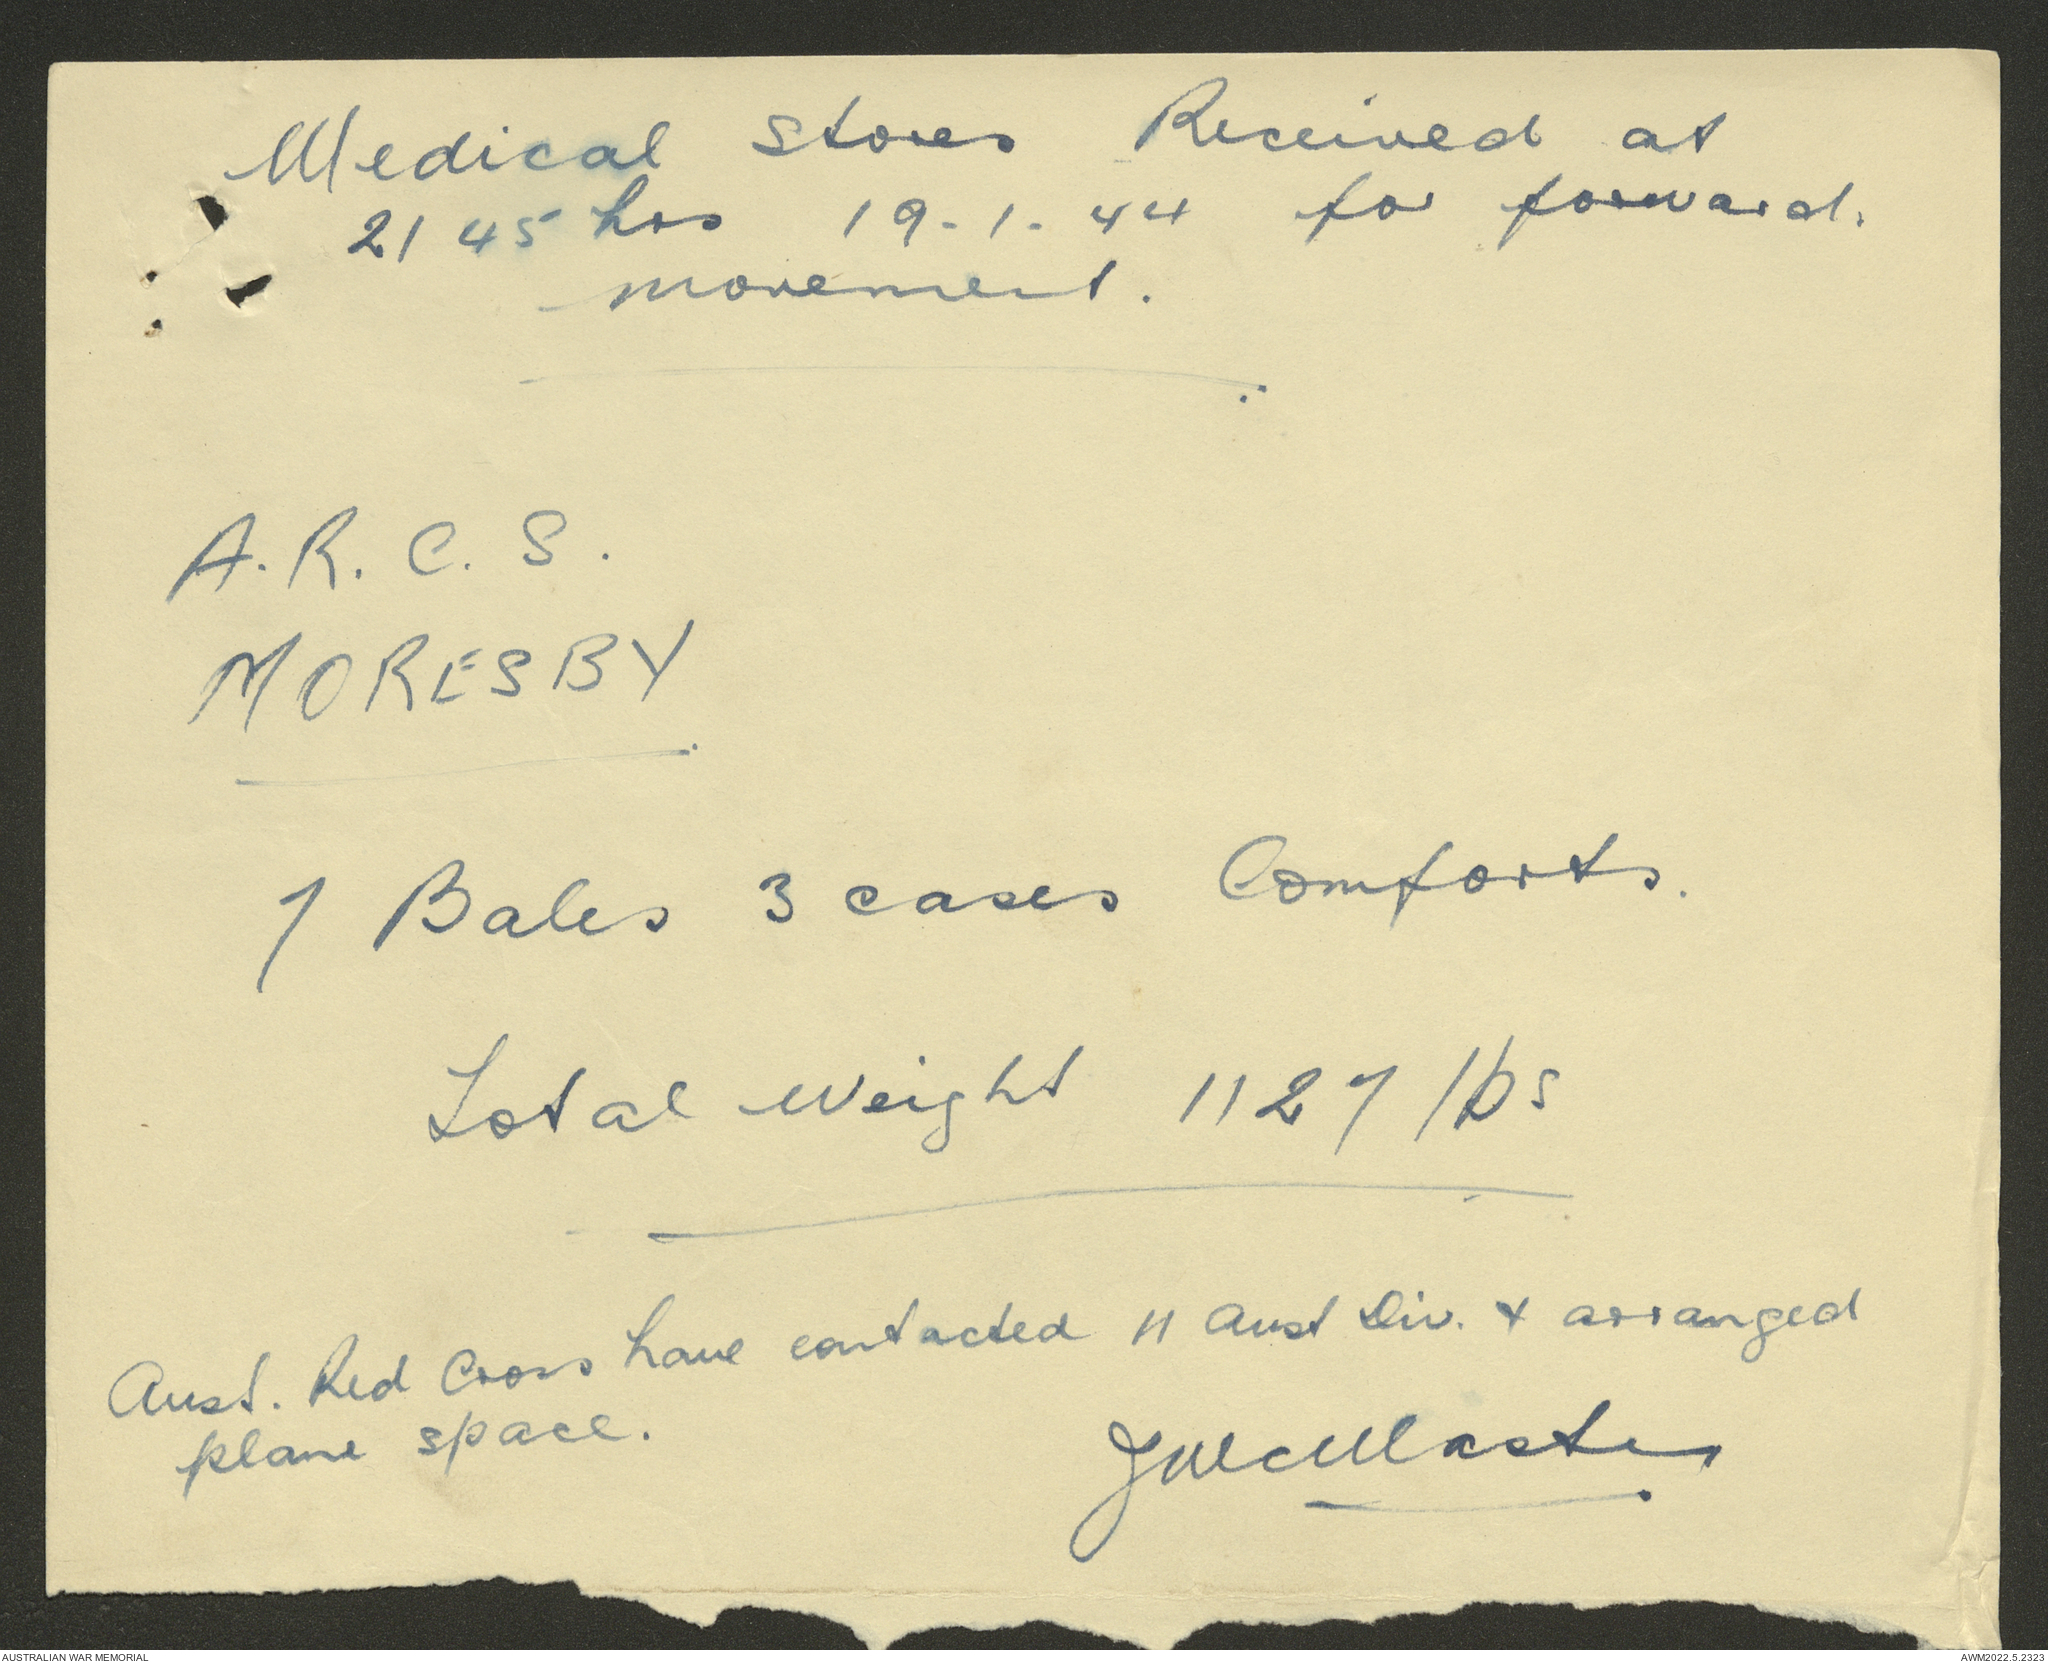 Medical Stores Received at
2145 hrs 19-1-44 for forward.
movement.
A.R.C.S.
MORESBY
7 Bales 3 cases Comforts.
Total Weight 1127 lbs
Aust. Red Cross have contacted 11 Aust Div. & arranged
plane space.
J McMaster
AUSTRALIAN WAR MEMORIAL
AWM2022.5.2323